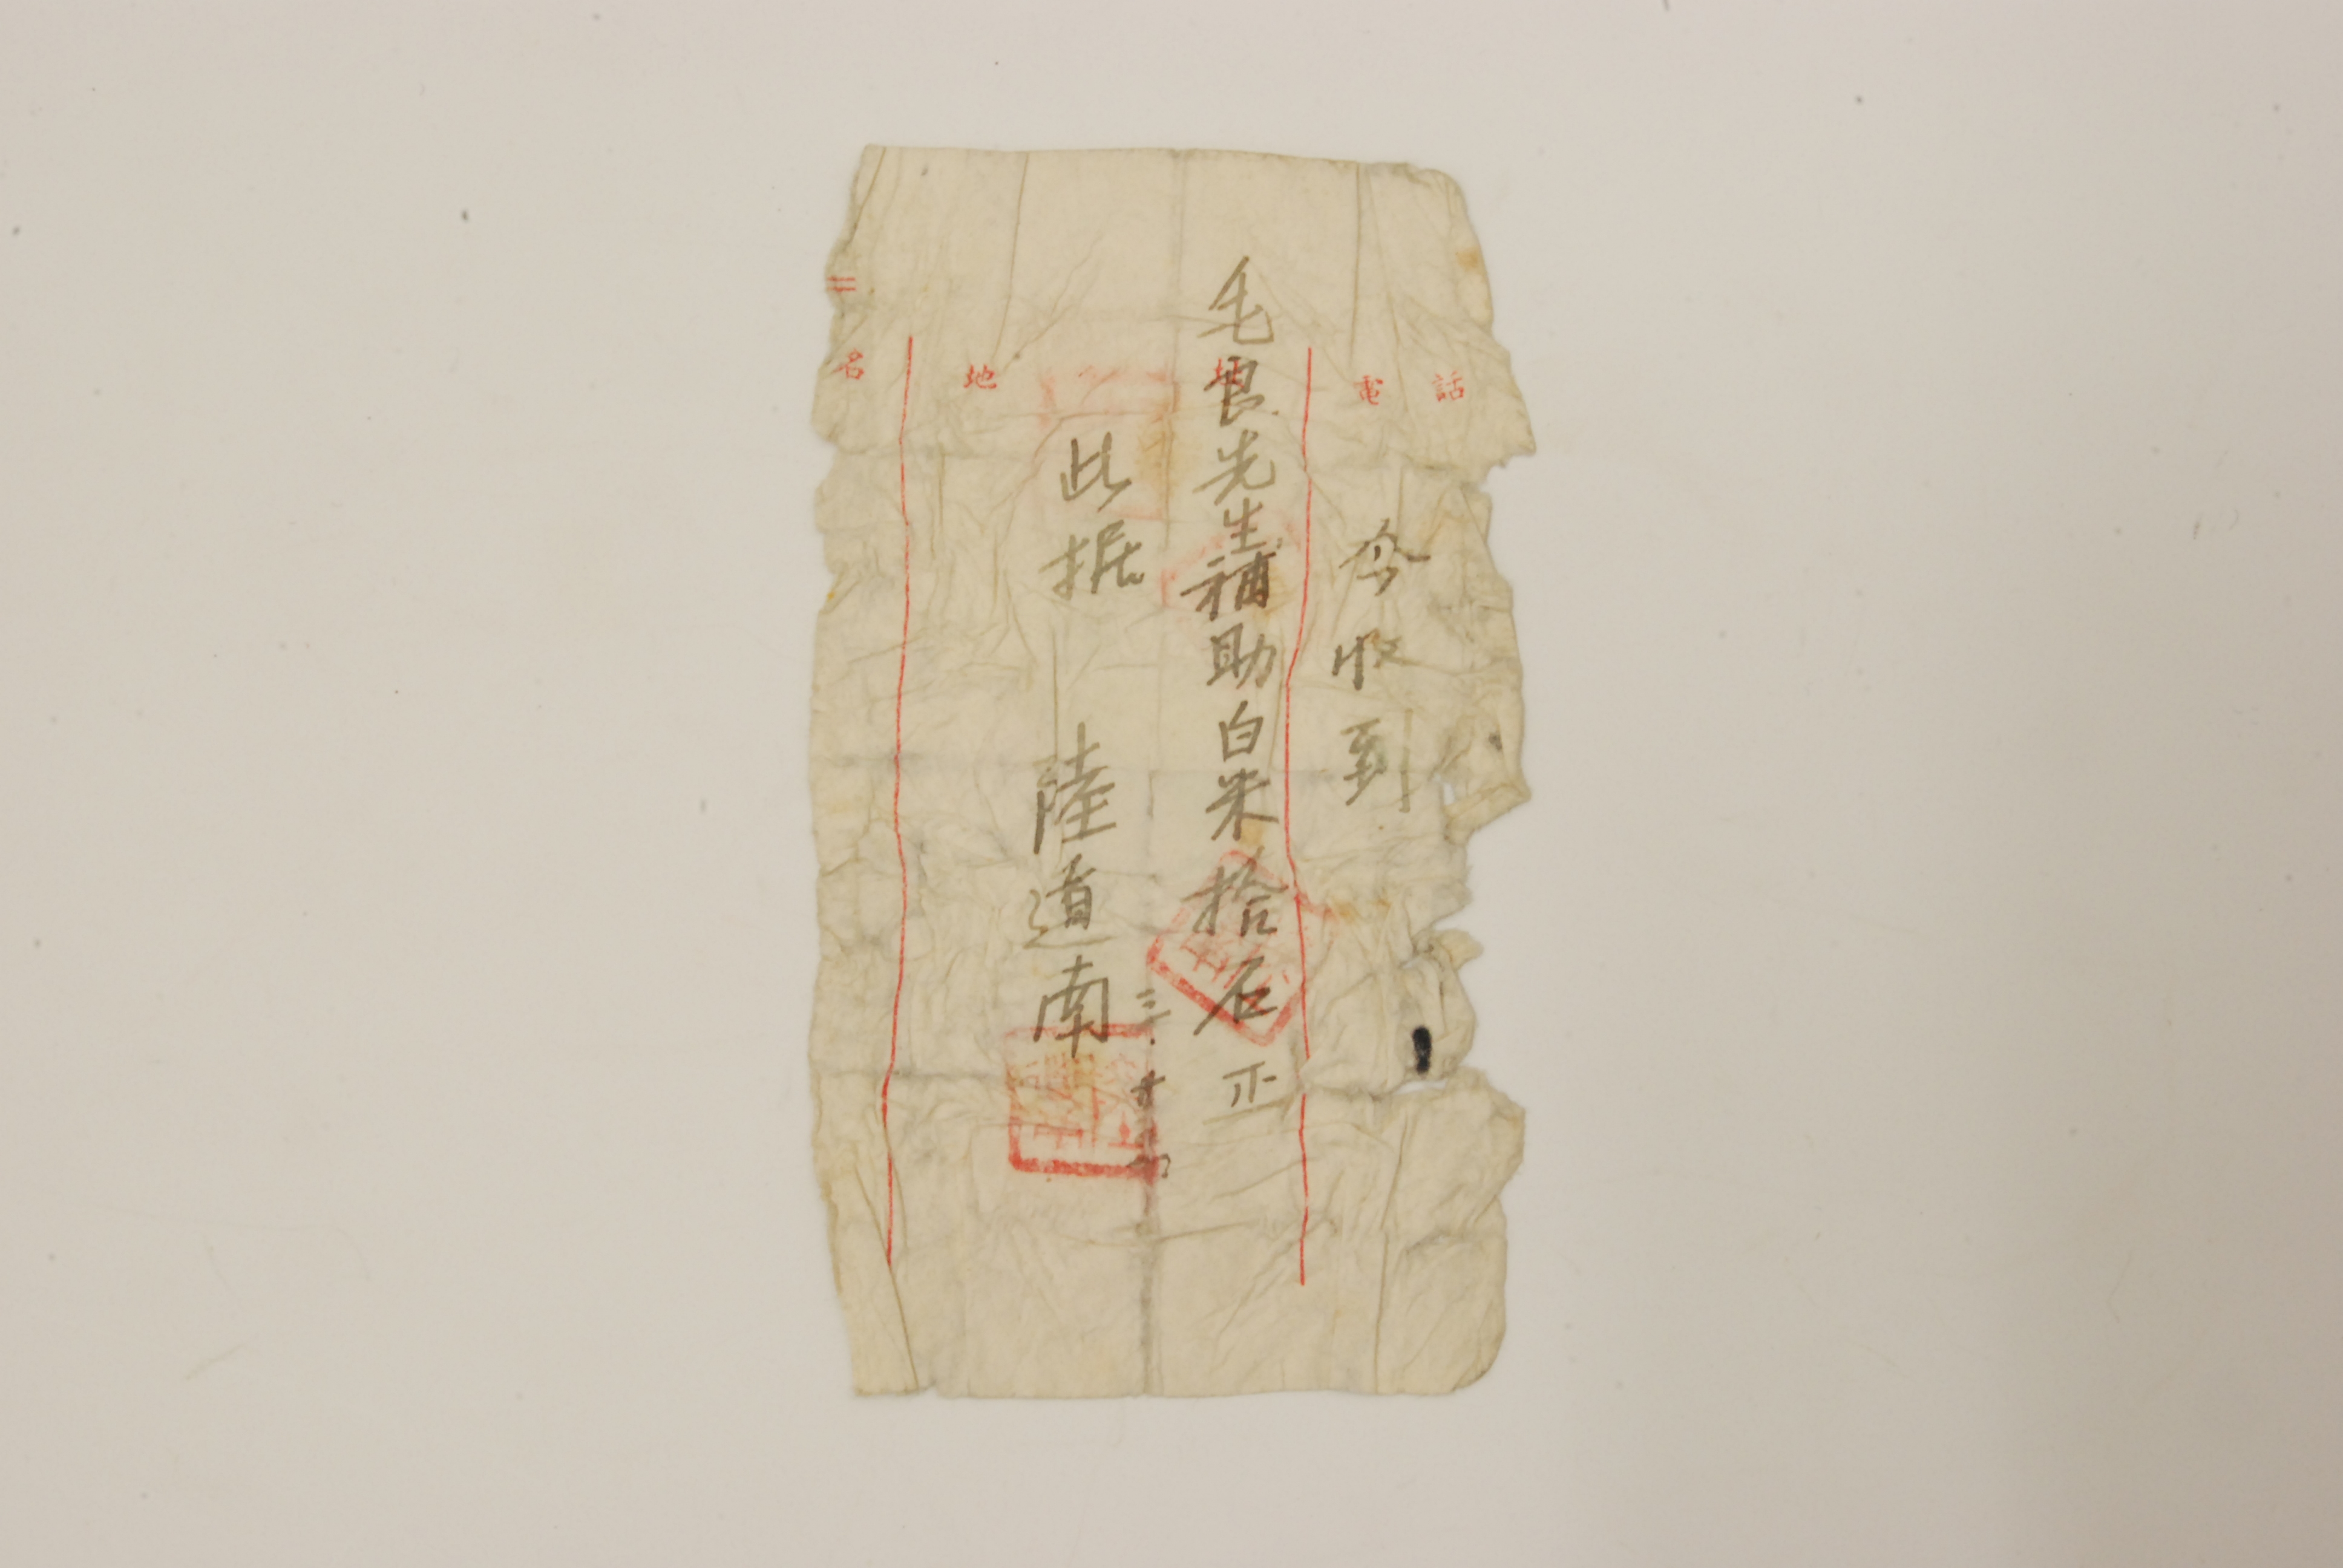 電話
今收到
毛良先生補助白米拾石正
地
此据
陸道南
三.十
名